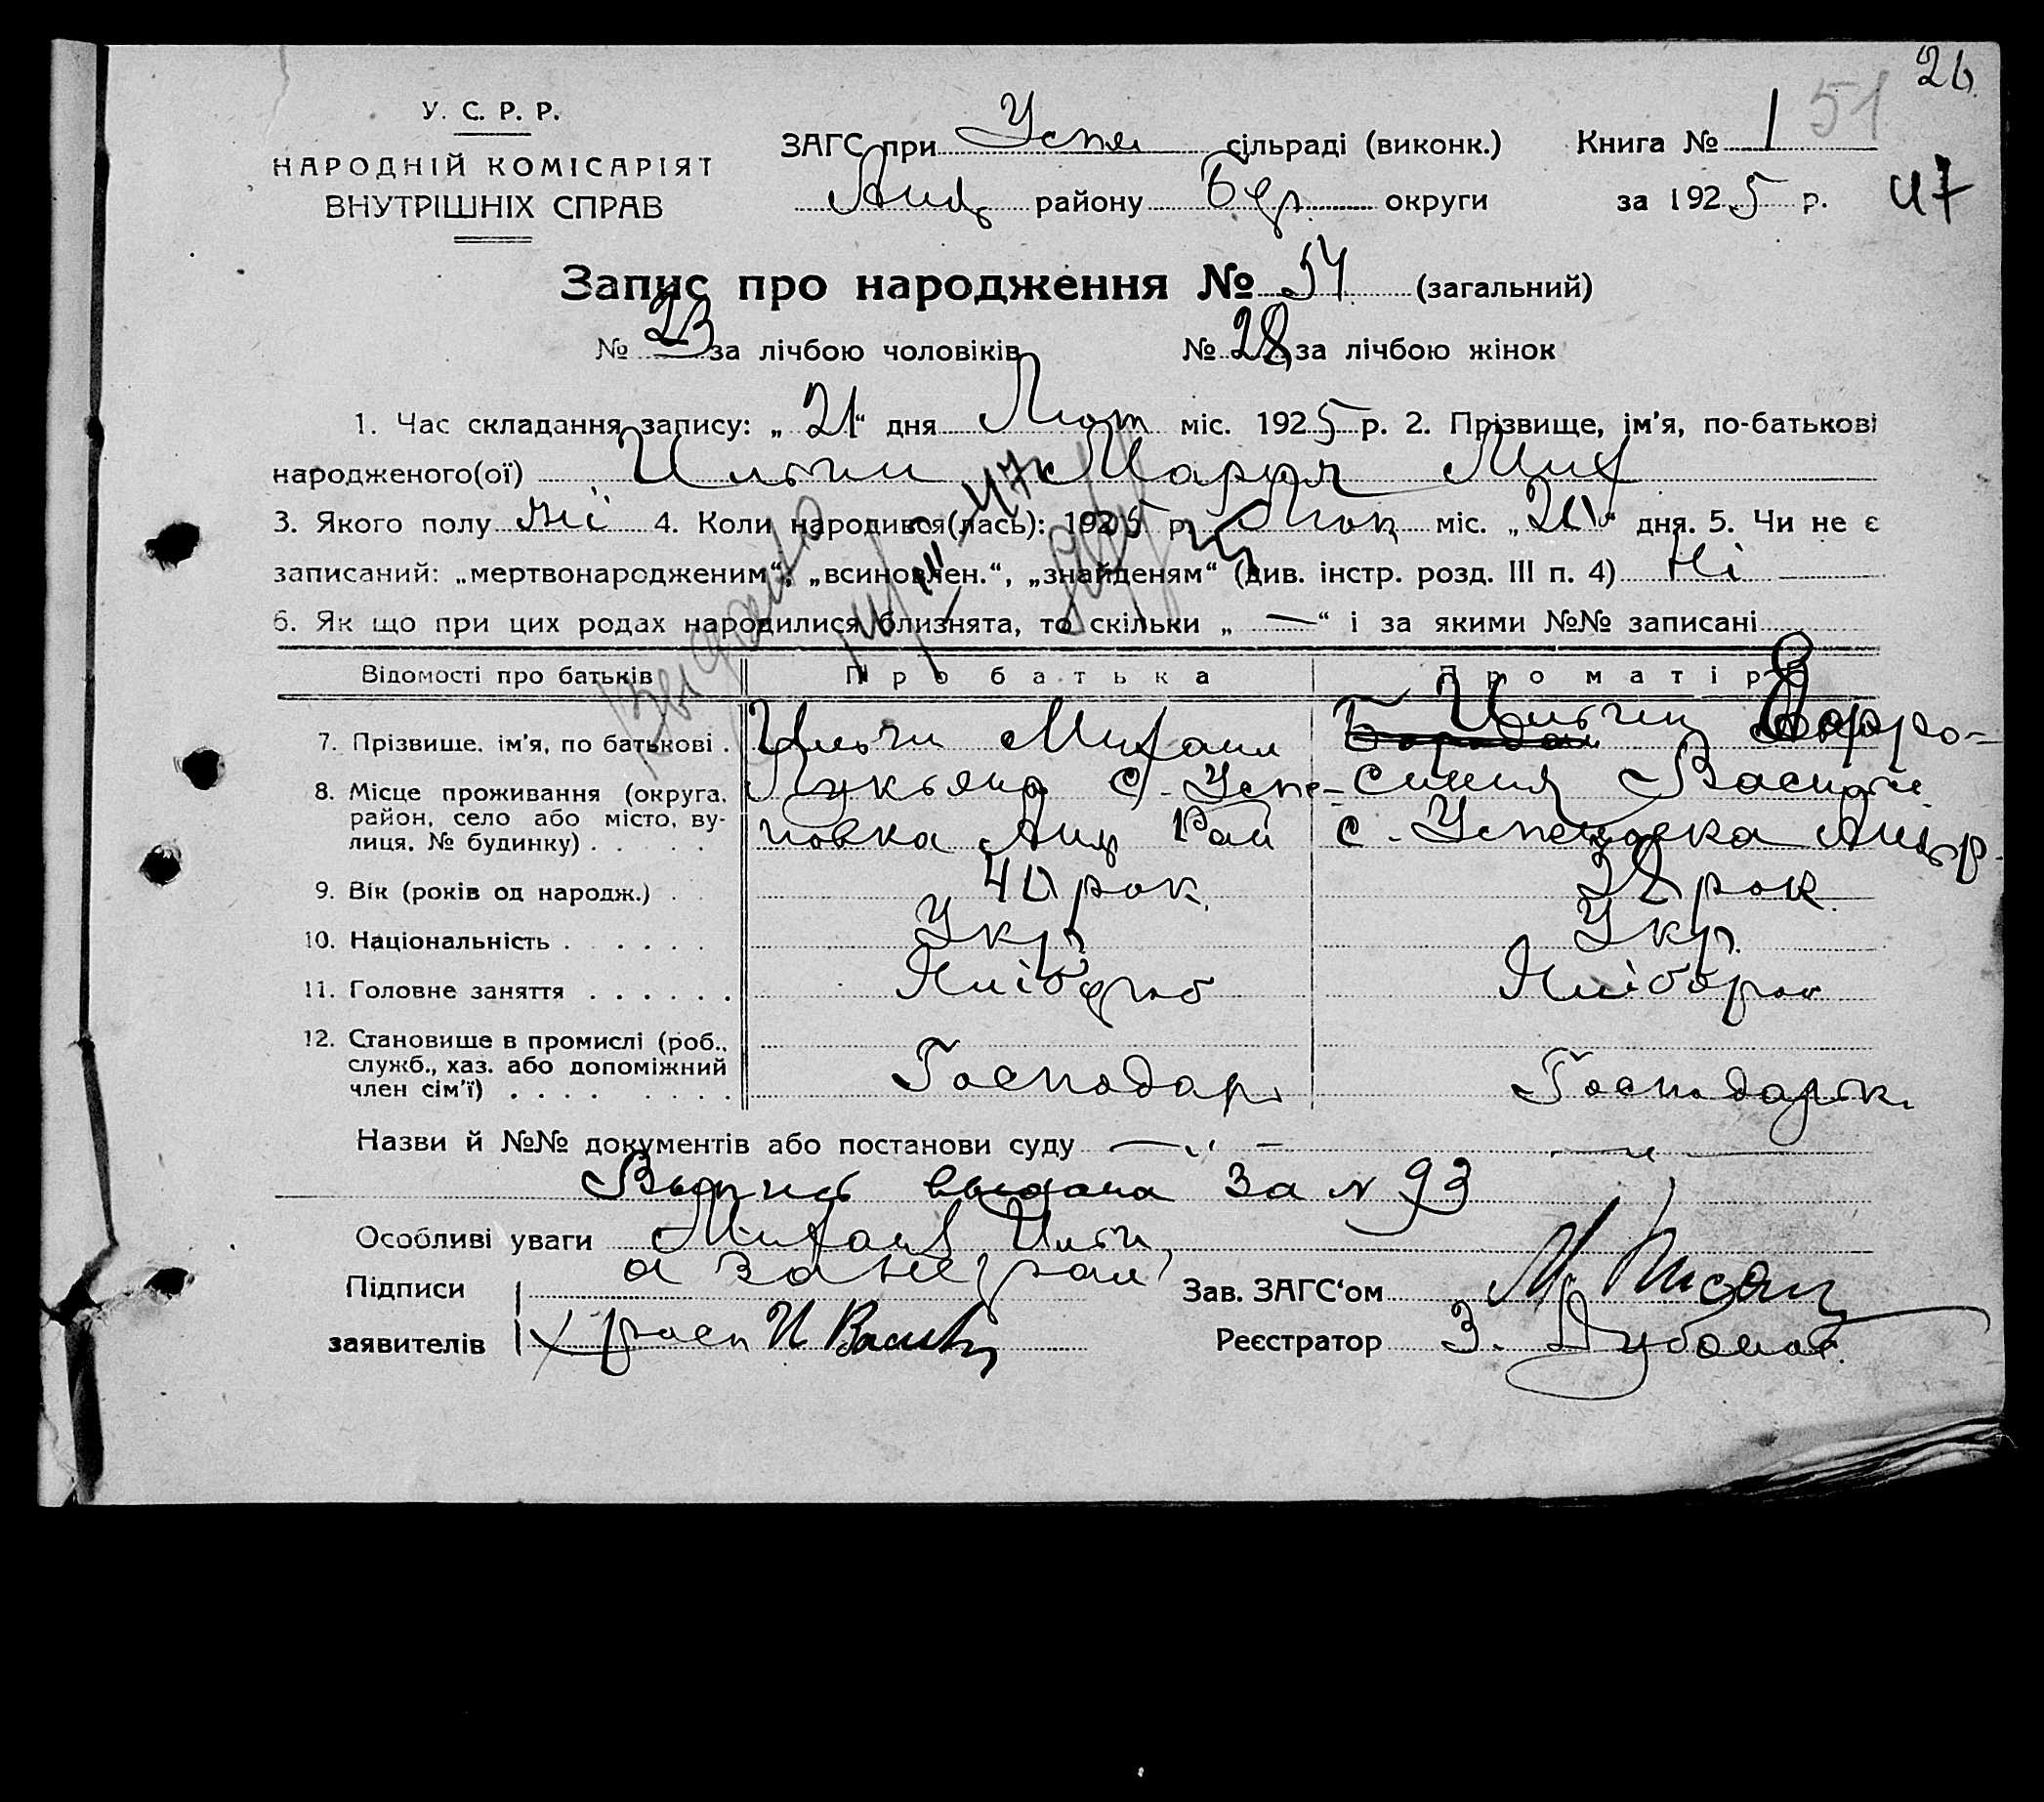 26
51
У. С. Р. Р.
НАРОДНІЙ КОМІСАРІЯТ
ВНУТРІШНІХ СПРАВ
ЗАГС при Успен сільраді (виконк.) Книга № 1
Анд району Бер. округи за 1925 р. 47
Запис про народження № 54 (загальний)
№ 23 за лічбою чоловіків № 28 за лічбою жінок
1. Час складання запису: „21“ дня Лют міс. 1925 р. 2. Прізвище, ім'я, по-батькові
народженого(ої) Ильчи Мария Мих
3. Якого полу жі 4. Коли народився(лась): 1925 р. Лют міс. „20“ дня. 5. Чи не є
записаний: „мертвонародженим“, „всиновлен.“, „знайденям“ (див. інстр. розд. III п. 4) Ні
6. Як що при цих родах народилися близнята, то скільки „—“ і за якими №№ записані
Відомості про батьків Про батька Про матір
7. Прізвище, ім'я, по батькові . Ильчи Михаил Ильчи
8. Місце проживання (округа, Лукьяно с. Успе- Васил
район, село або місто, ву-
лиця, № будинку) . . . . . новка Анд Рай с. Успеновка Анд р.
9. Вік (років од народж.) . . 40 рок. 38 рок.
10. Національність . . . . . . Укр Укр.
11. Головне заняття . . . . . . Хлібороб Хлібороб
12. Становище в промислі (роб.,
служб., хаз. або допоміжний Господар Господарк.
член сім'ї) . . . . . . . .
Назви й №№ документів або постанови суду — „ — — „ —
Выпись выдана за № 93
Особливі уваги Михаил Ильчи
Підписи а за неграм Зав. ЗАГС‘ом М. Писан
заявителів И Реєстратор З. Дубовой